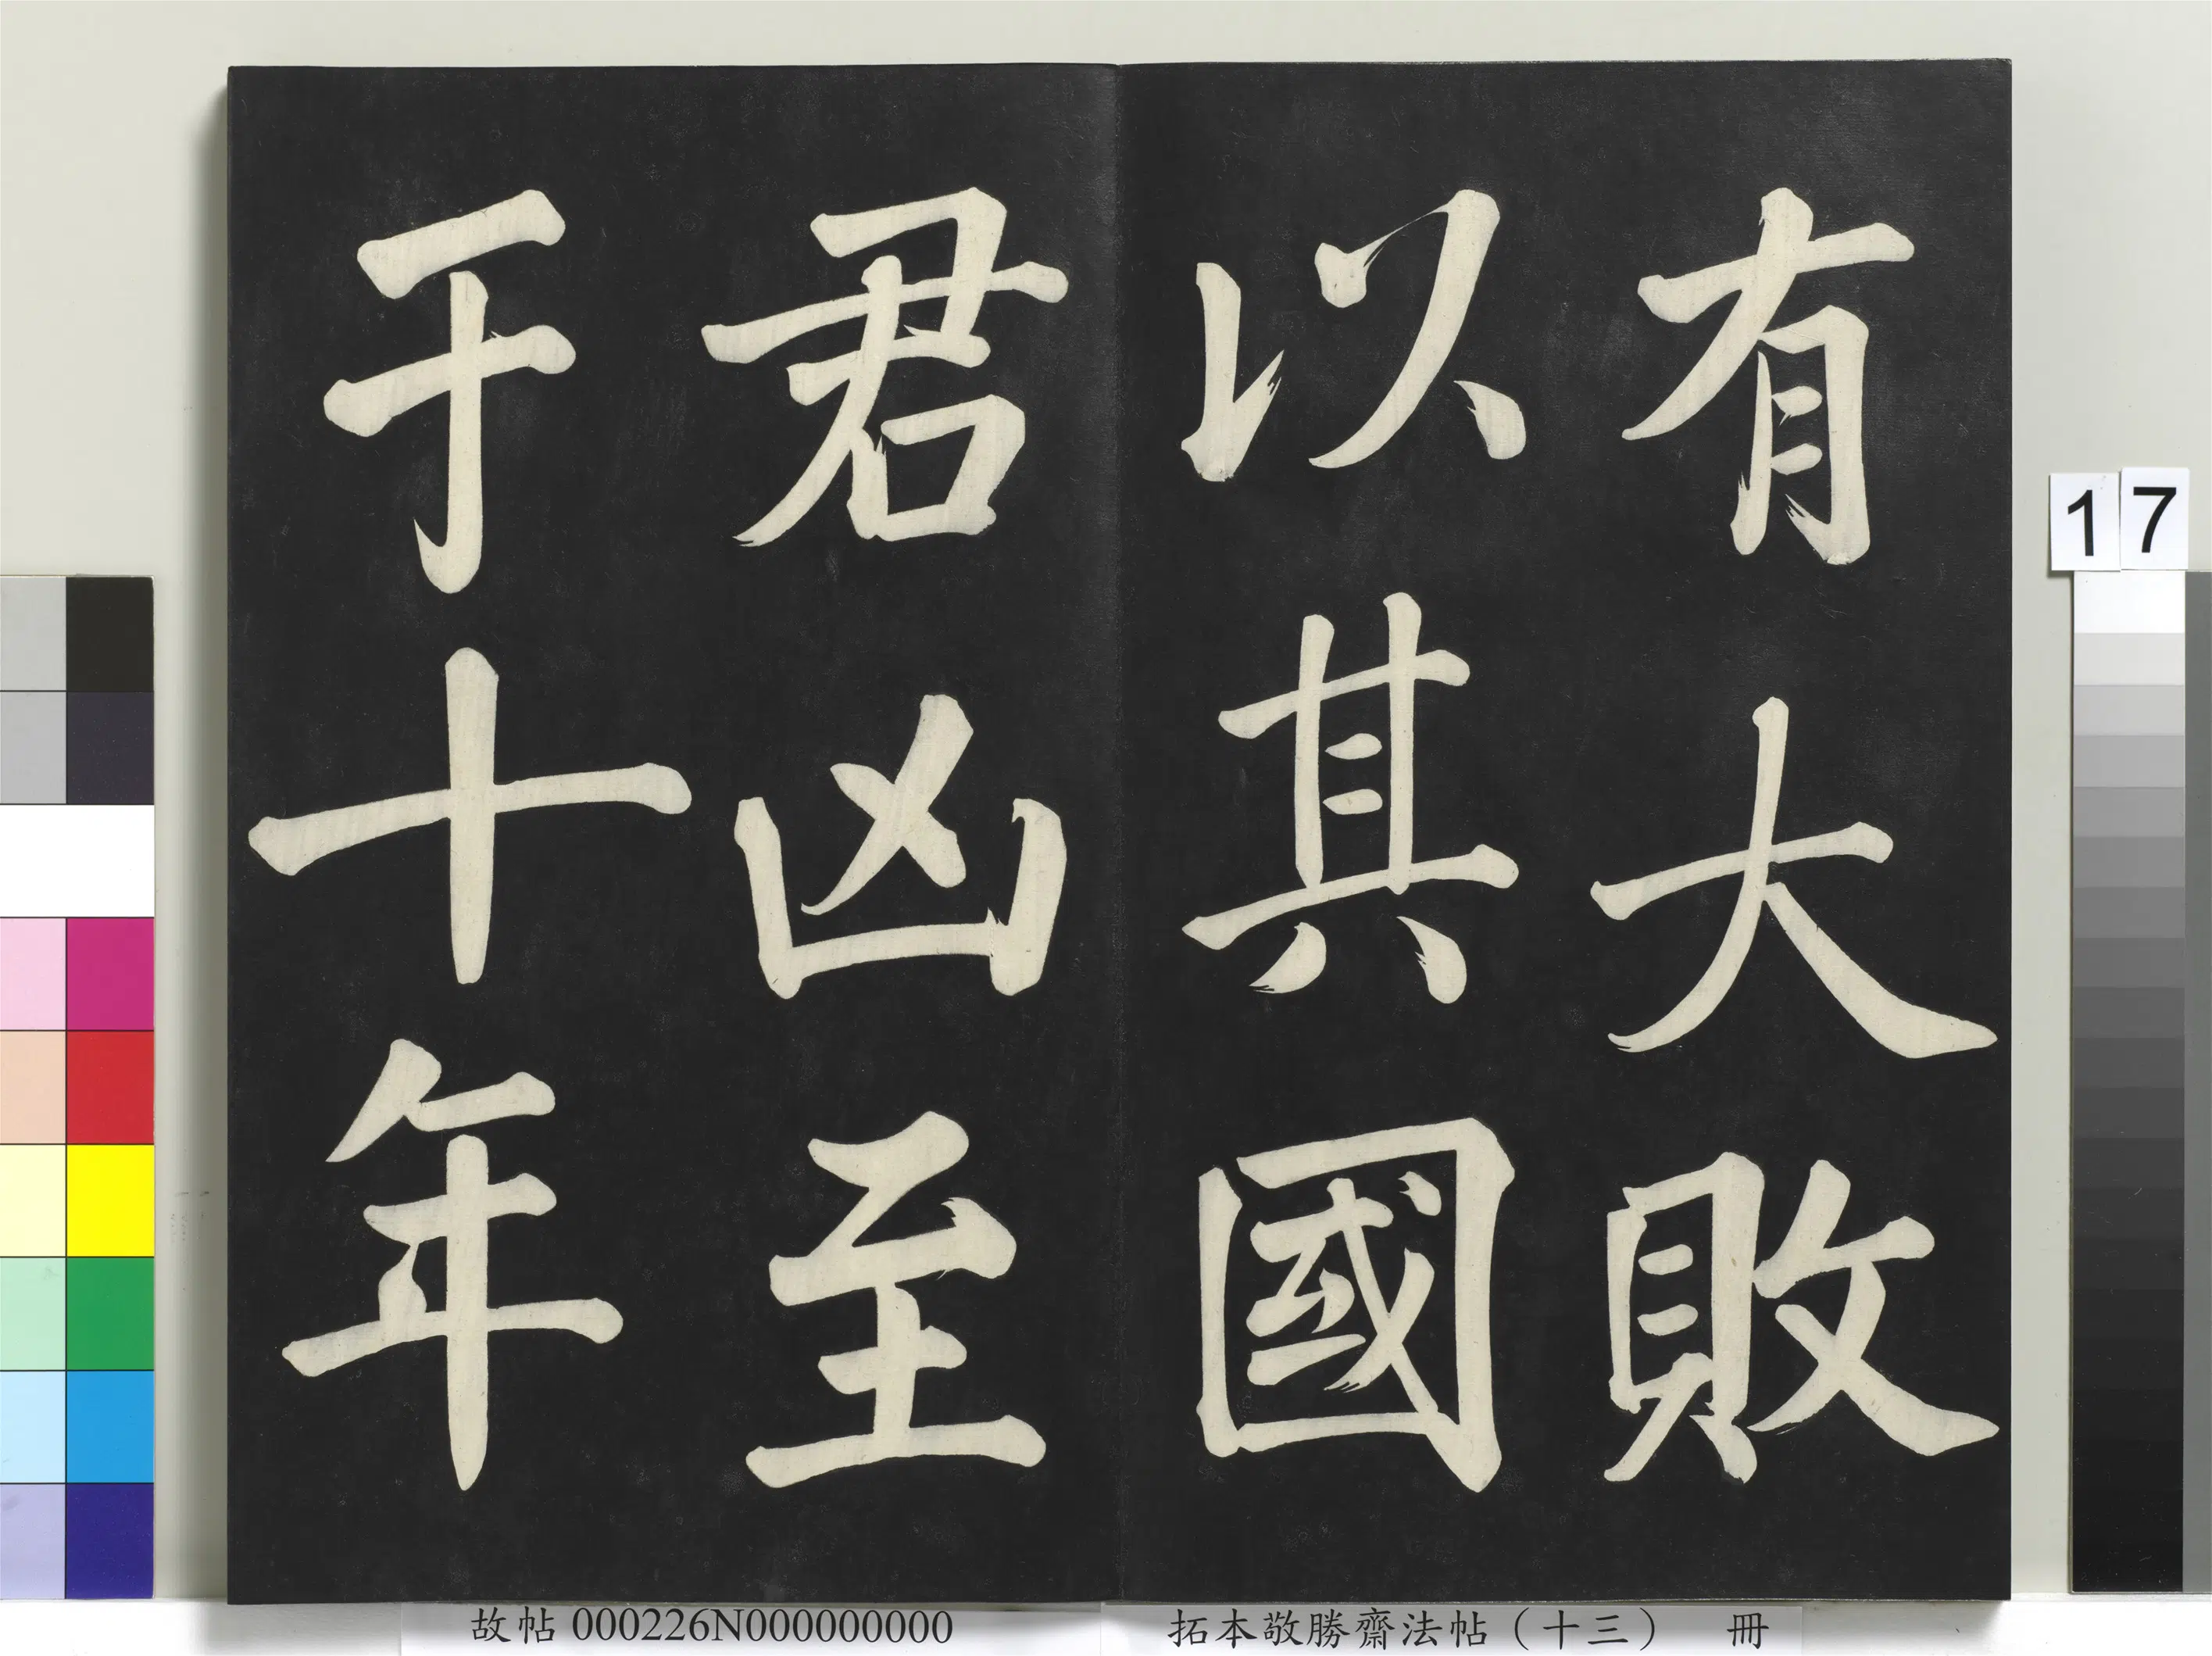 有大敗
以其國
君凶至
于十年
17
故帖 000226N000000000
拓本敬勝齋法帖（十三） 冊